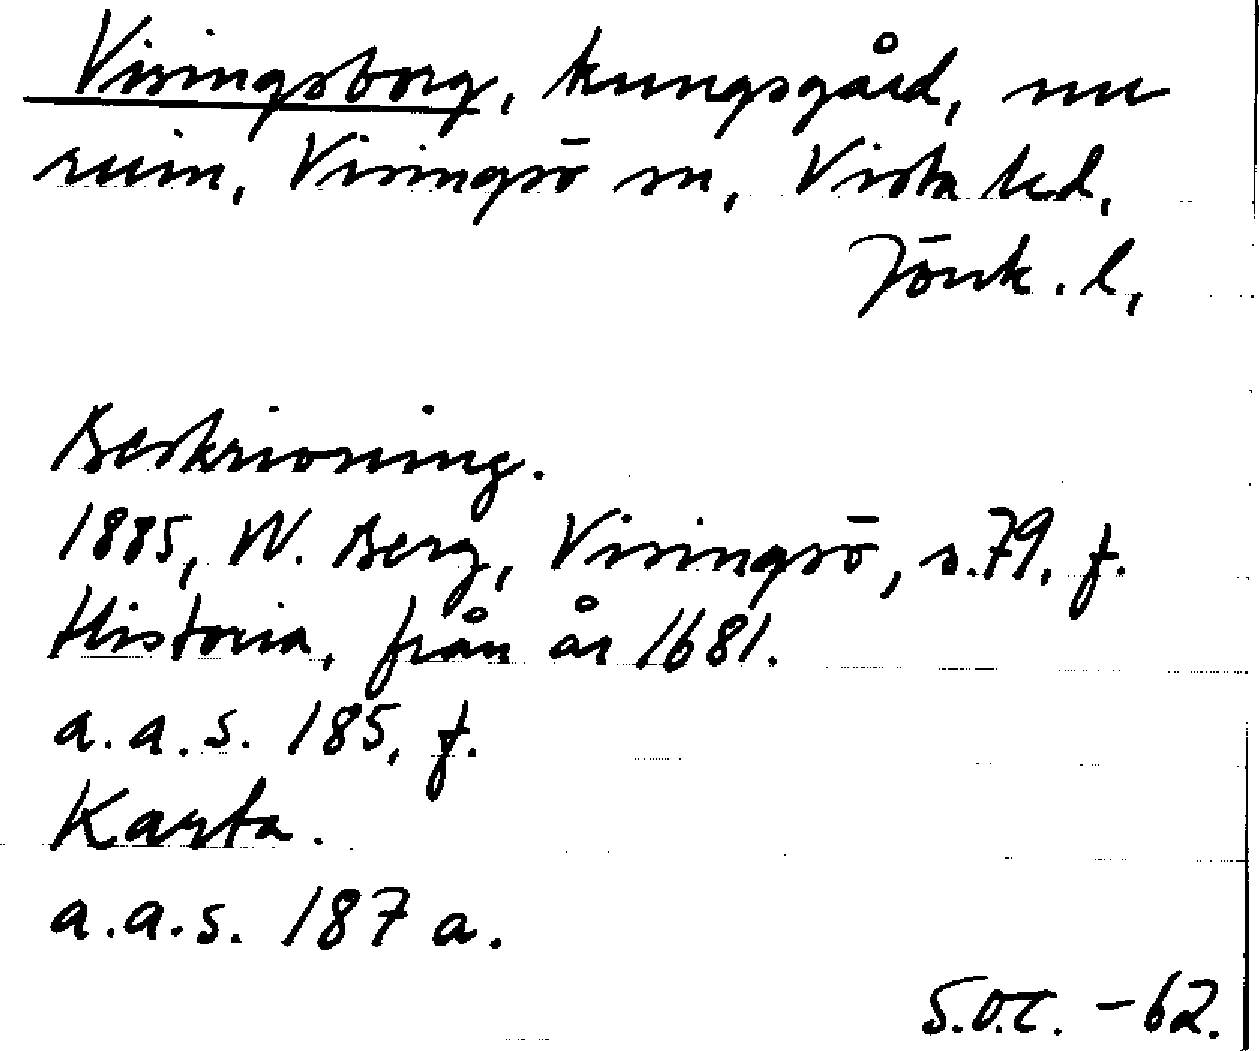 Visingsborg, kungsgård, nu
ruin, Visingsö sn, Vista hd,
Jönk. l,
Beskrivning.
1885, W. Berg, Visingsö, s. 79, f.
Historia, från år 1681.
a.a.s. 185, f.
Karta.
a.a.s. 187 a.
S.O.C. -62.